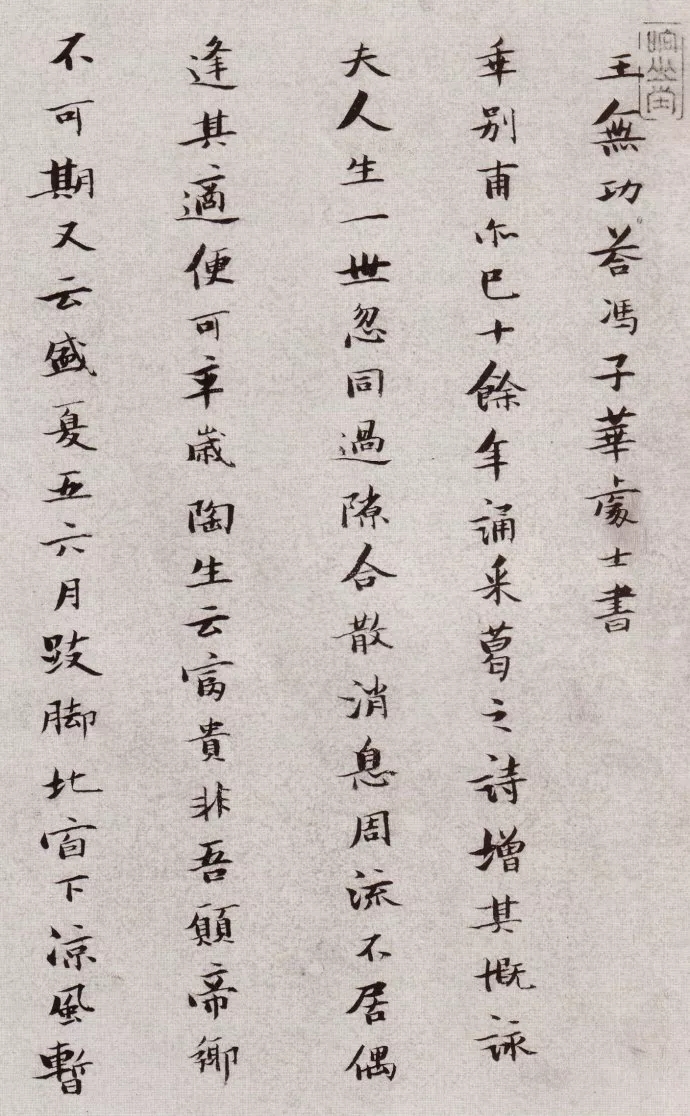 王無功荅馮子華處士書
乖別甫尓已十餘年誦采葛之詩增其慨詠
夫人生一世忽同過隙合散消息周流不居偶
逢其適便可卒歲陶生云富貴非吾願帝鄉
不可期又云盛夏五六月跂脚北窗下涼風暫